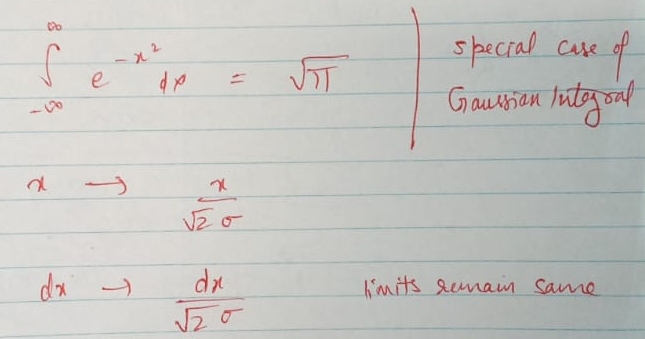 ∫_{-∞}^{∞} e^{-x²} dx = √π
special case of
Gaussian Integral
x → x/(√2 σ)
dx → dx/(√2 σ) limits remain same